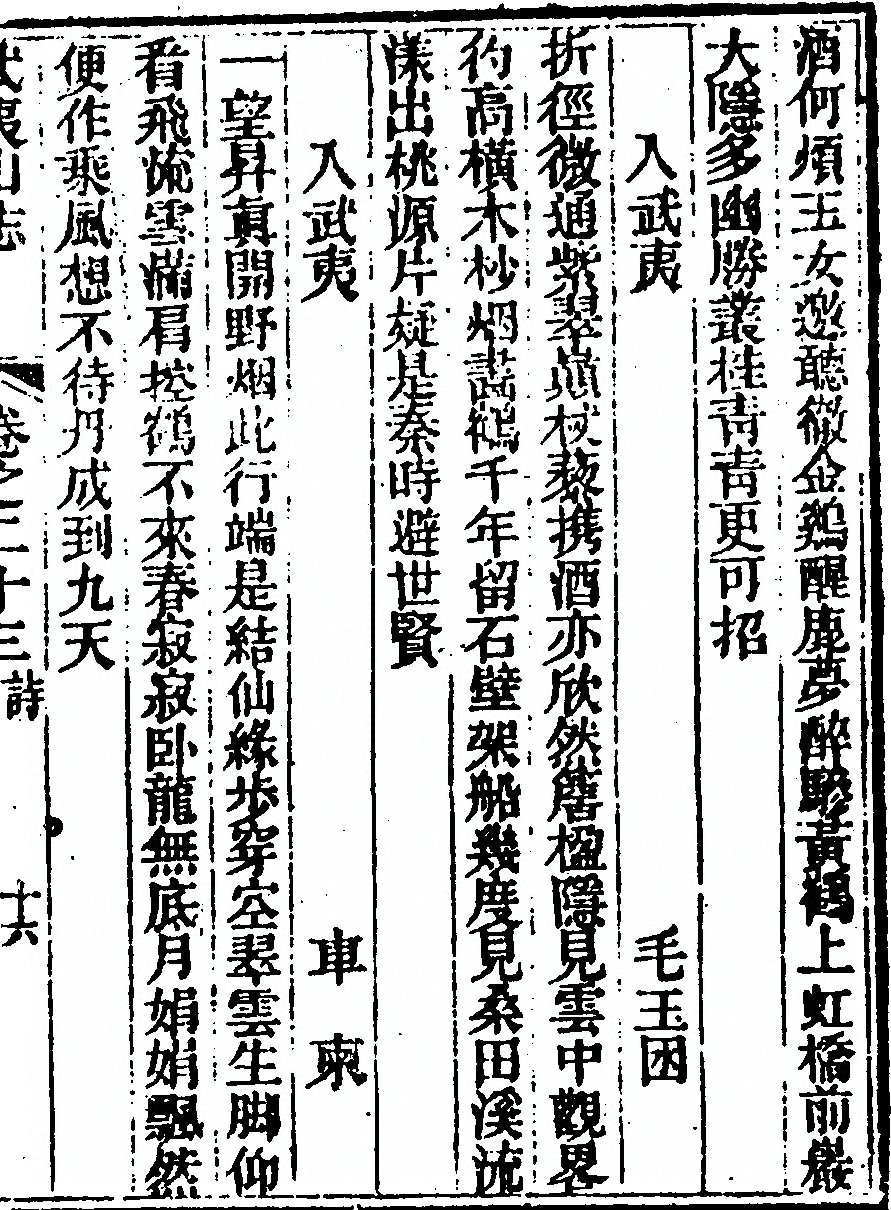 酒何煩玉女邀聽徹金鷄醒鹿夢醉驂黃鶴上虹橋前巖
大隱多幽勝叢桂青青更可招
入武夷
毛玉困
折徑微通紫翠巔杖藜携酒亦欣然簷楹隱見雲中觀略
彴高橫木杪烟蓄鶴千年留石壁架船幾度見桑田溪流
漾出桃源片疑是秦時避世賢
入武夷
車柬
一望昇眞開野烟此行端是結仙緣步穿空翠雲生脚仰
看飛流雲滿肩控鶴不來春寂寂卧龍無底月娟娟飄然
便作乘風想不待丹成到九天
武夷山志
卷之二十三
詩
十六